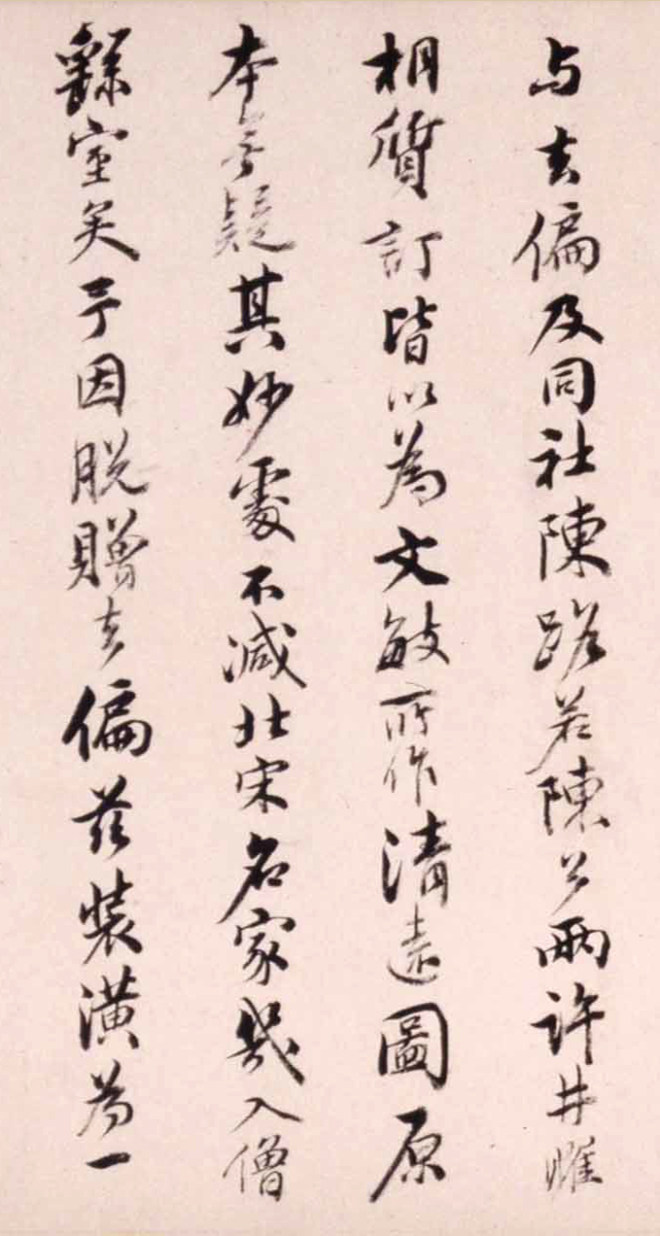 与去偏及同社陳路若陳公兩許井雕
相質訂皆以為文敏所作清遠圖原
本無疑其妙處不減北宋名家幾入僧
繇室矣予因脫贈去偏茲裝潢為一